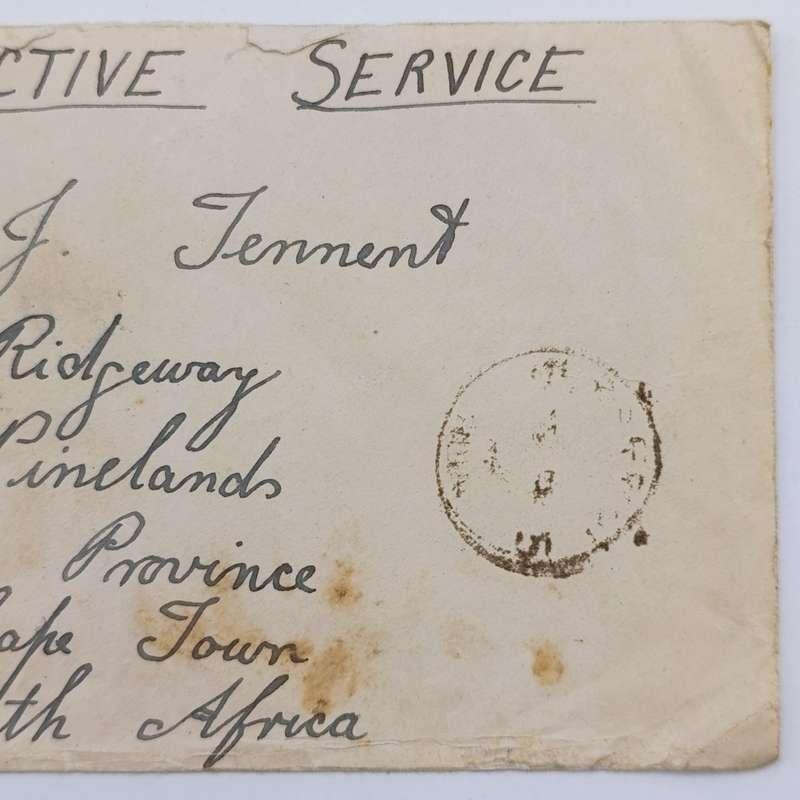 CTIVE SERVICE
J. Tennent
Ridgeway
Pinelands
Province
ape Town
th Africa